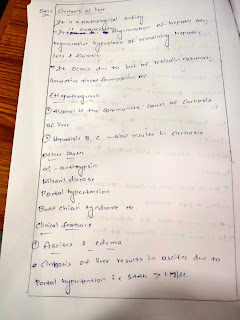 Cirrhosis of liver
It is a pathological entity
It is characterized
degeneration of hepatic
regenerative hyperplasia of remaining hepatic
cells & fibrosis
* It occurs due to loss of reticulin network,
Etiopathogenesis
① Alcohol is the commonest cause of cirrhosis
of liver
② Hepatitis B, C - also results in cirrhosis
Other causes
α1 - antitrypsin
Wilson's disease
Portal hypertension
Budd chiari syndrome etc.
Clinical features
① Ascites & edema
* Cirrhosis of liver results in ascites due to
Portal hypertension i.e